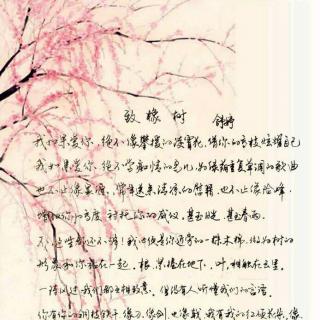 致橡树
舒婷
我如果爱你,绝不像攀援的凌霄花,借你的高枝炫耀自己
我如果爱你,绝不学痴情的鸟儿,为绿荫重复单调的歌曲
也不止像泉源,常年送来清凉的慰籍,也不止像险峰,
增加你的高度,衬托你的威仪,甚至日光,甚至春雨。
不,这些都还不够!我必须是你近旁的一株木棉,做为树的
形象和你站在一起。根,紧握在地下,叶,相触在云里。
一阵风过,我们都互相致意,但没有人听懂我们的言语。
你有你的铜枝铁干,像刀,像剑,也像戟,我有我的红硕花朵,像